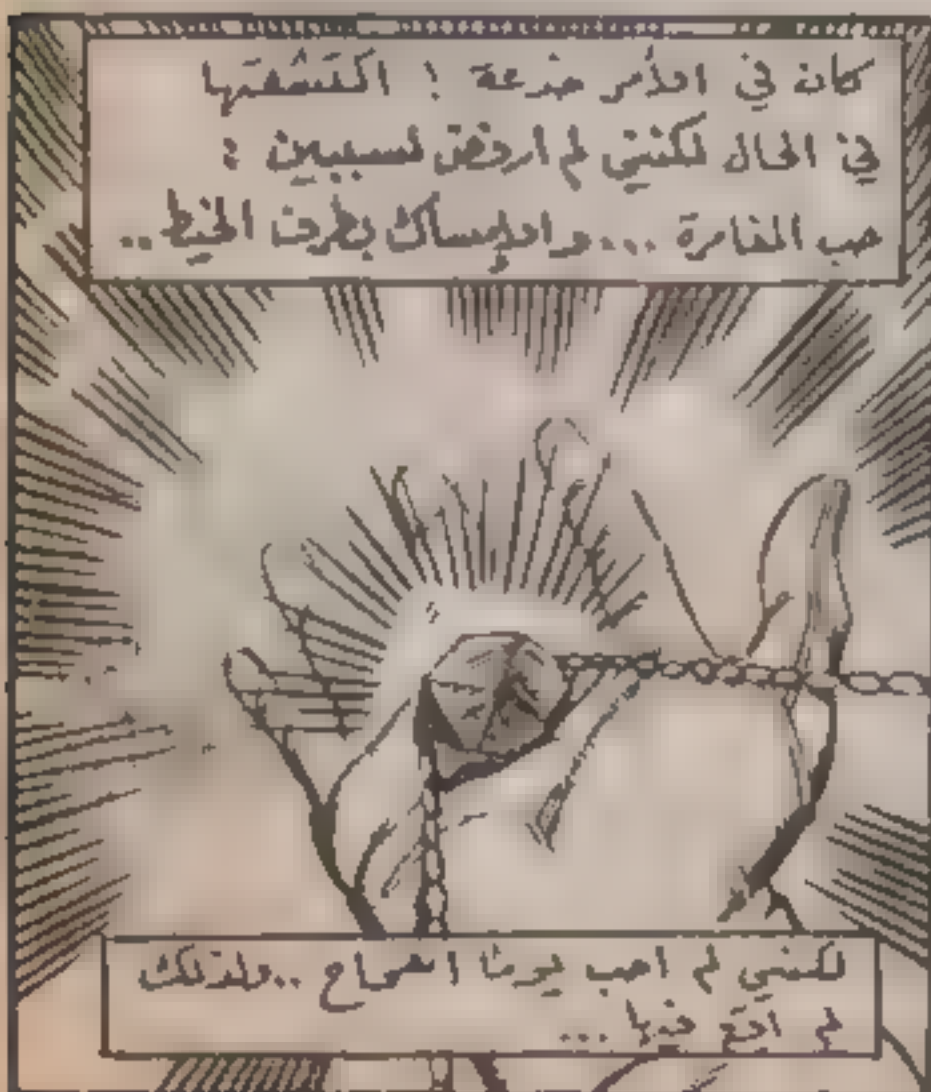 كان في الأمر خدعة ! اكتشفتها
في الحال لكنني لم ارفض لسببين :
حب المغامرة ... والإمساك بطرف الخيط ..
لكنني لم احب يومًا .. ولذلك
لم اقع فيها ...